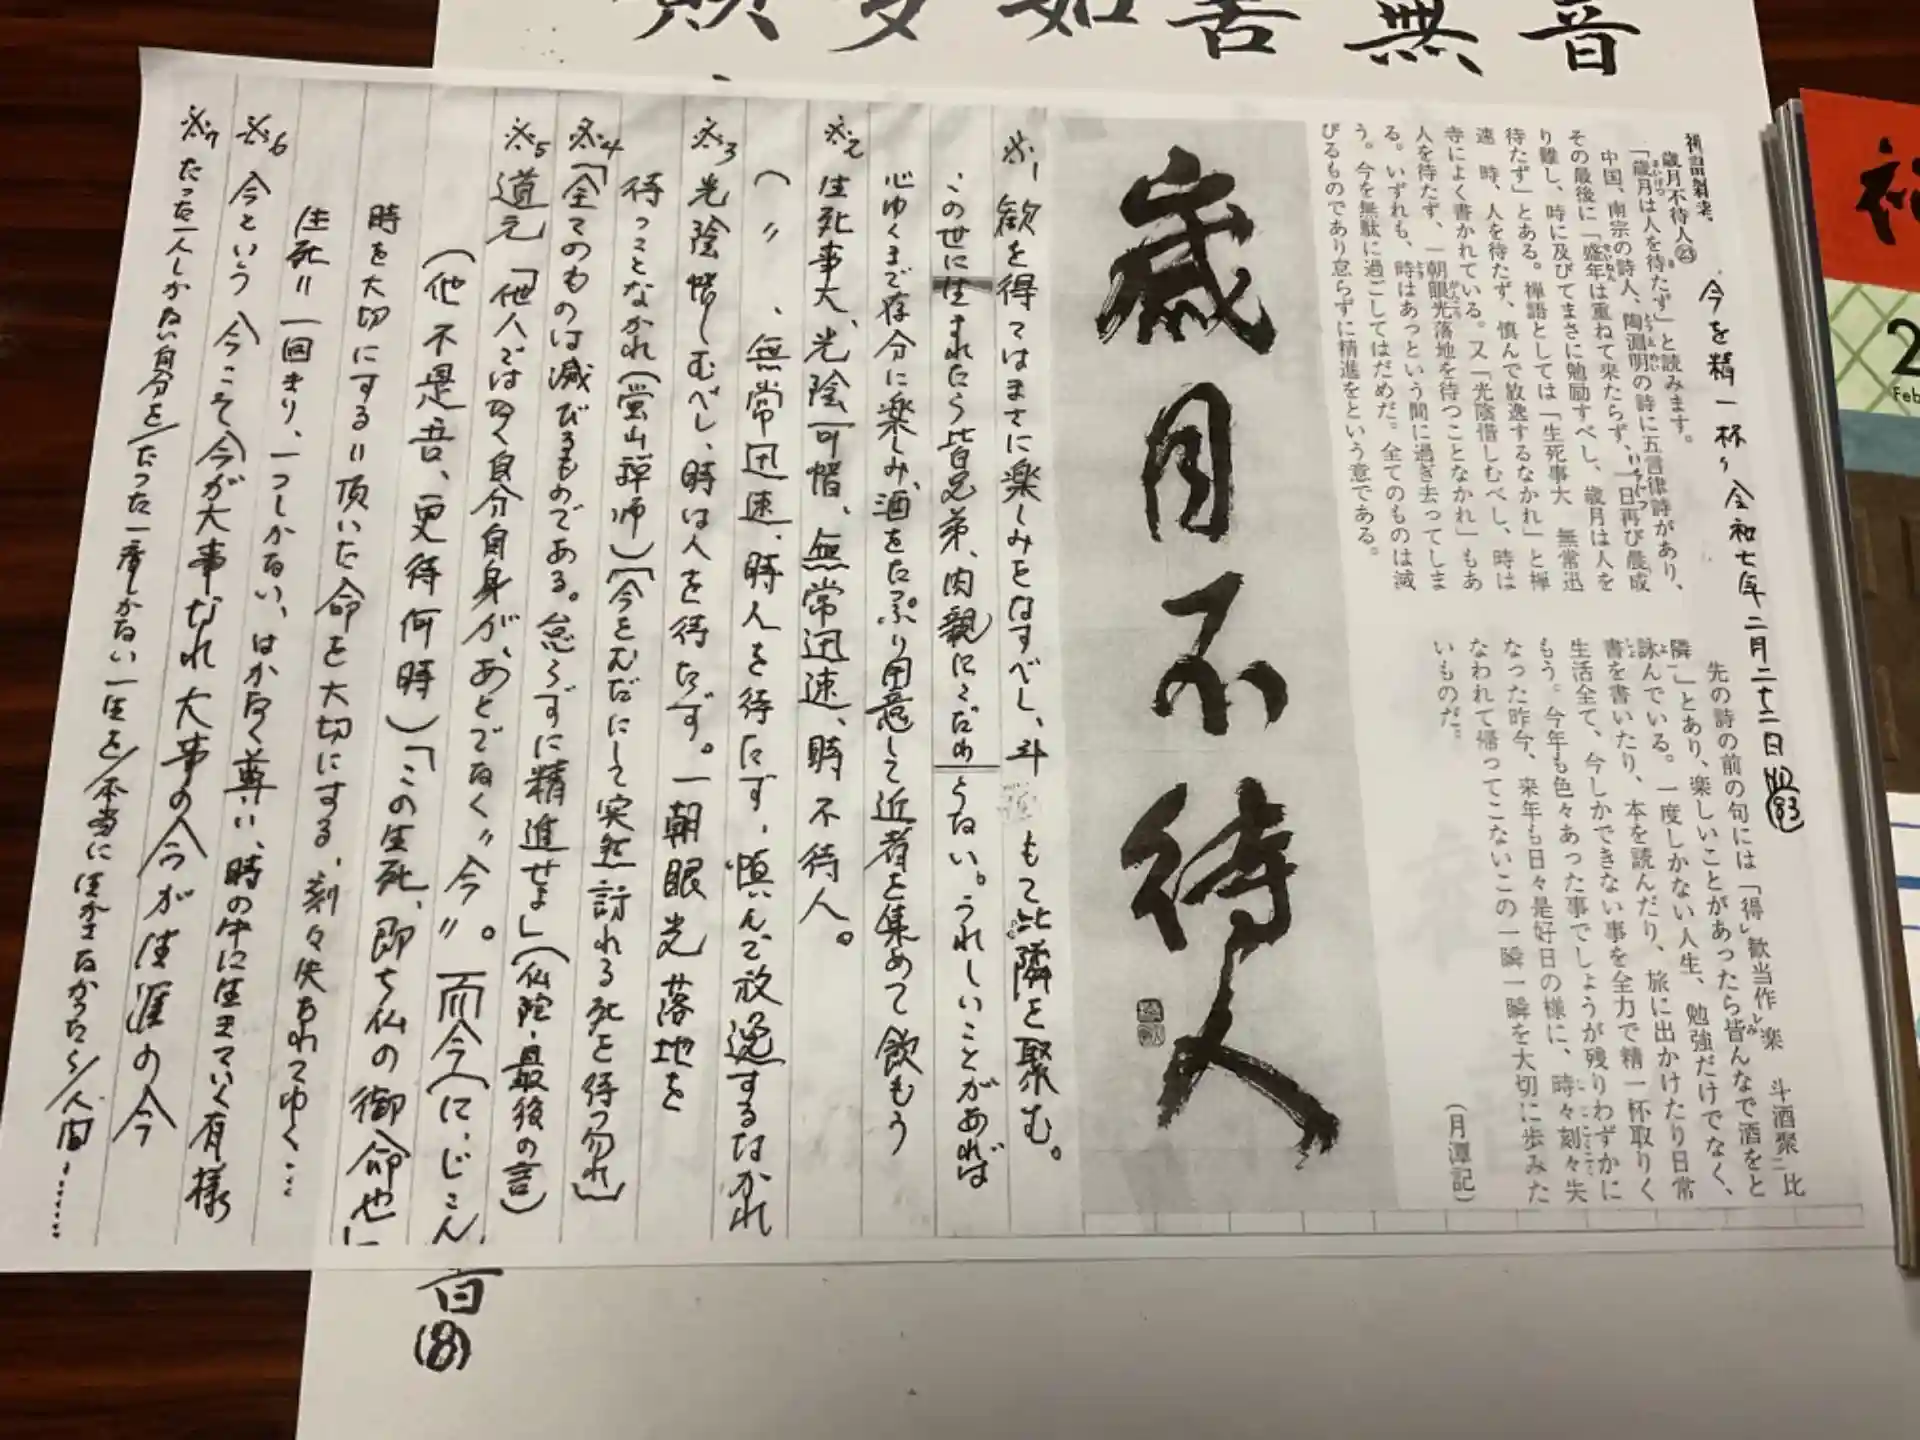 音無苦如
歳月不待人㉓
「歳月は人を待たず」と読みます。
中国、南宗の詩人、陶淵明の詩に五言律詩があり、
その最後に「盛年は重ねて来たらず、一日再び晨成
り難し、時に及びてまさに勉励すべし、歳月は人を
待たず」とある。禅語としては「生死事大 無常迅
速 時、人を待たず、慎んで放逸するなかれ」と禅
寺によく書かれている。又「光陰惜しむべし、時は
人を待たず、一朝眼光落地を待つことなかれ」もあ
る。いずれも、時はあっという間に過ぎ去ってしま
う。今を無駄に過ごしてはだめだ。全てのものは滅
びるものであり怠らずに精進をという意である。
今を精一杯〃 令和七年二月二十二日 83
先の詩の前の句には「得レ歓当作レ楽 斗酒聚二比
隣一」とあり、楽しいことがあったら皆んなで酒をと
詠んでいる。一度しかない人生、勉強だけでなく、
書を書いたり、本を読んだり、旅に出かけたり日常
生活全て、今しかできない事を全力で精一杯取りく
もう。今年も色々あった事でしょうが残りわずかに
なった昨今、来年も日々是好日の様に、時々刻々失
なわれて帰ってこないこの一瞬一瞬を大切に歩みた
いものだ。
(月潭記)
歳月不待人
※1 歓を得てはまさに楽しみをなすべし、斗 もて比隣を聚む。
この世に生まれたら皆兄弟、肉親にこだわらない。うれしいことがあれば
心ゆくまで存分に楽しみ、酒をたっぷり用意して近者を集めて飲もう
※2 生死事大、光陰可惜、無常迅速、時不待人。
( 〃 、無常迅速、時人を待たず、慎んで放逸するなかれ
※3 光陰惜しむべし、時は人を待たず。一朝眼光落地を
待つことなかれ(蛍山禅師)「今をむだにして突然訪れる死を待つ勿れ」
※4「全てのものは滅びるものである。怠らずに精進せよ」(仏陀・最後の言)
※5 道元「他人ではなく自分自身が、あとでなく〃今〃。而今(にじこん、
(他不是吾、更待何時)「この生死、即ち仏の御命也」
時を大切にする=頂いた命を大切にする、刻々失なわれてゆく…
生死=一回きり、一つしかない、はかなく尊い、時の中に生きていく有様
※6 今という今こそ今が大事なれ大事の今が生涯の今
※7 たった一人しかない自分を/たった一度しかない一生を/本当に生かさなかったら/人間……
音
(8)
2
Feb